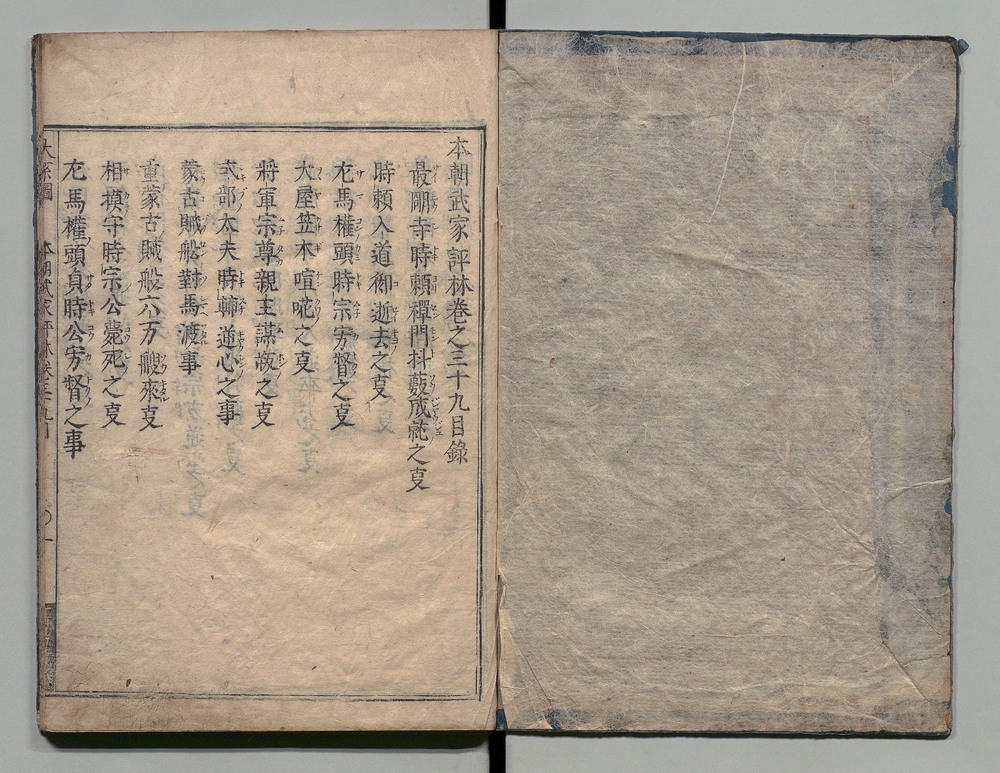 本朝武家評林巻之三十九目録
最明寺時頼禪門抖藪成就之叓
時頼入道御逝去之叓
左馬權頭時宗家督之叓
大屋笠木喧𠵅之叓
將軍宗尊親王謀叛之叓
式部太夫時輔逆心之事
蒙古賊船對馬渡事
重蒙古賊船六万艘來叓
相摸守時宗公薨死之叓
左馬權頭貞時公家督之事
大系圖 本朝武家評林